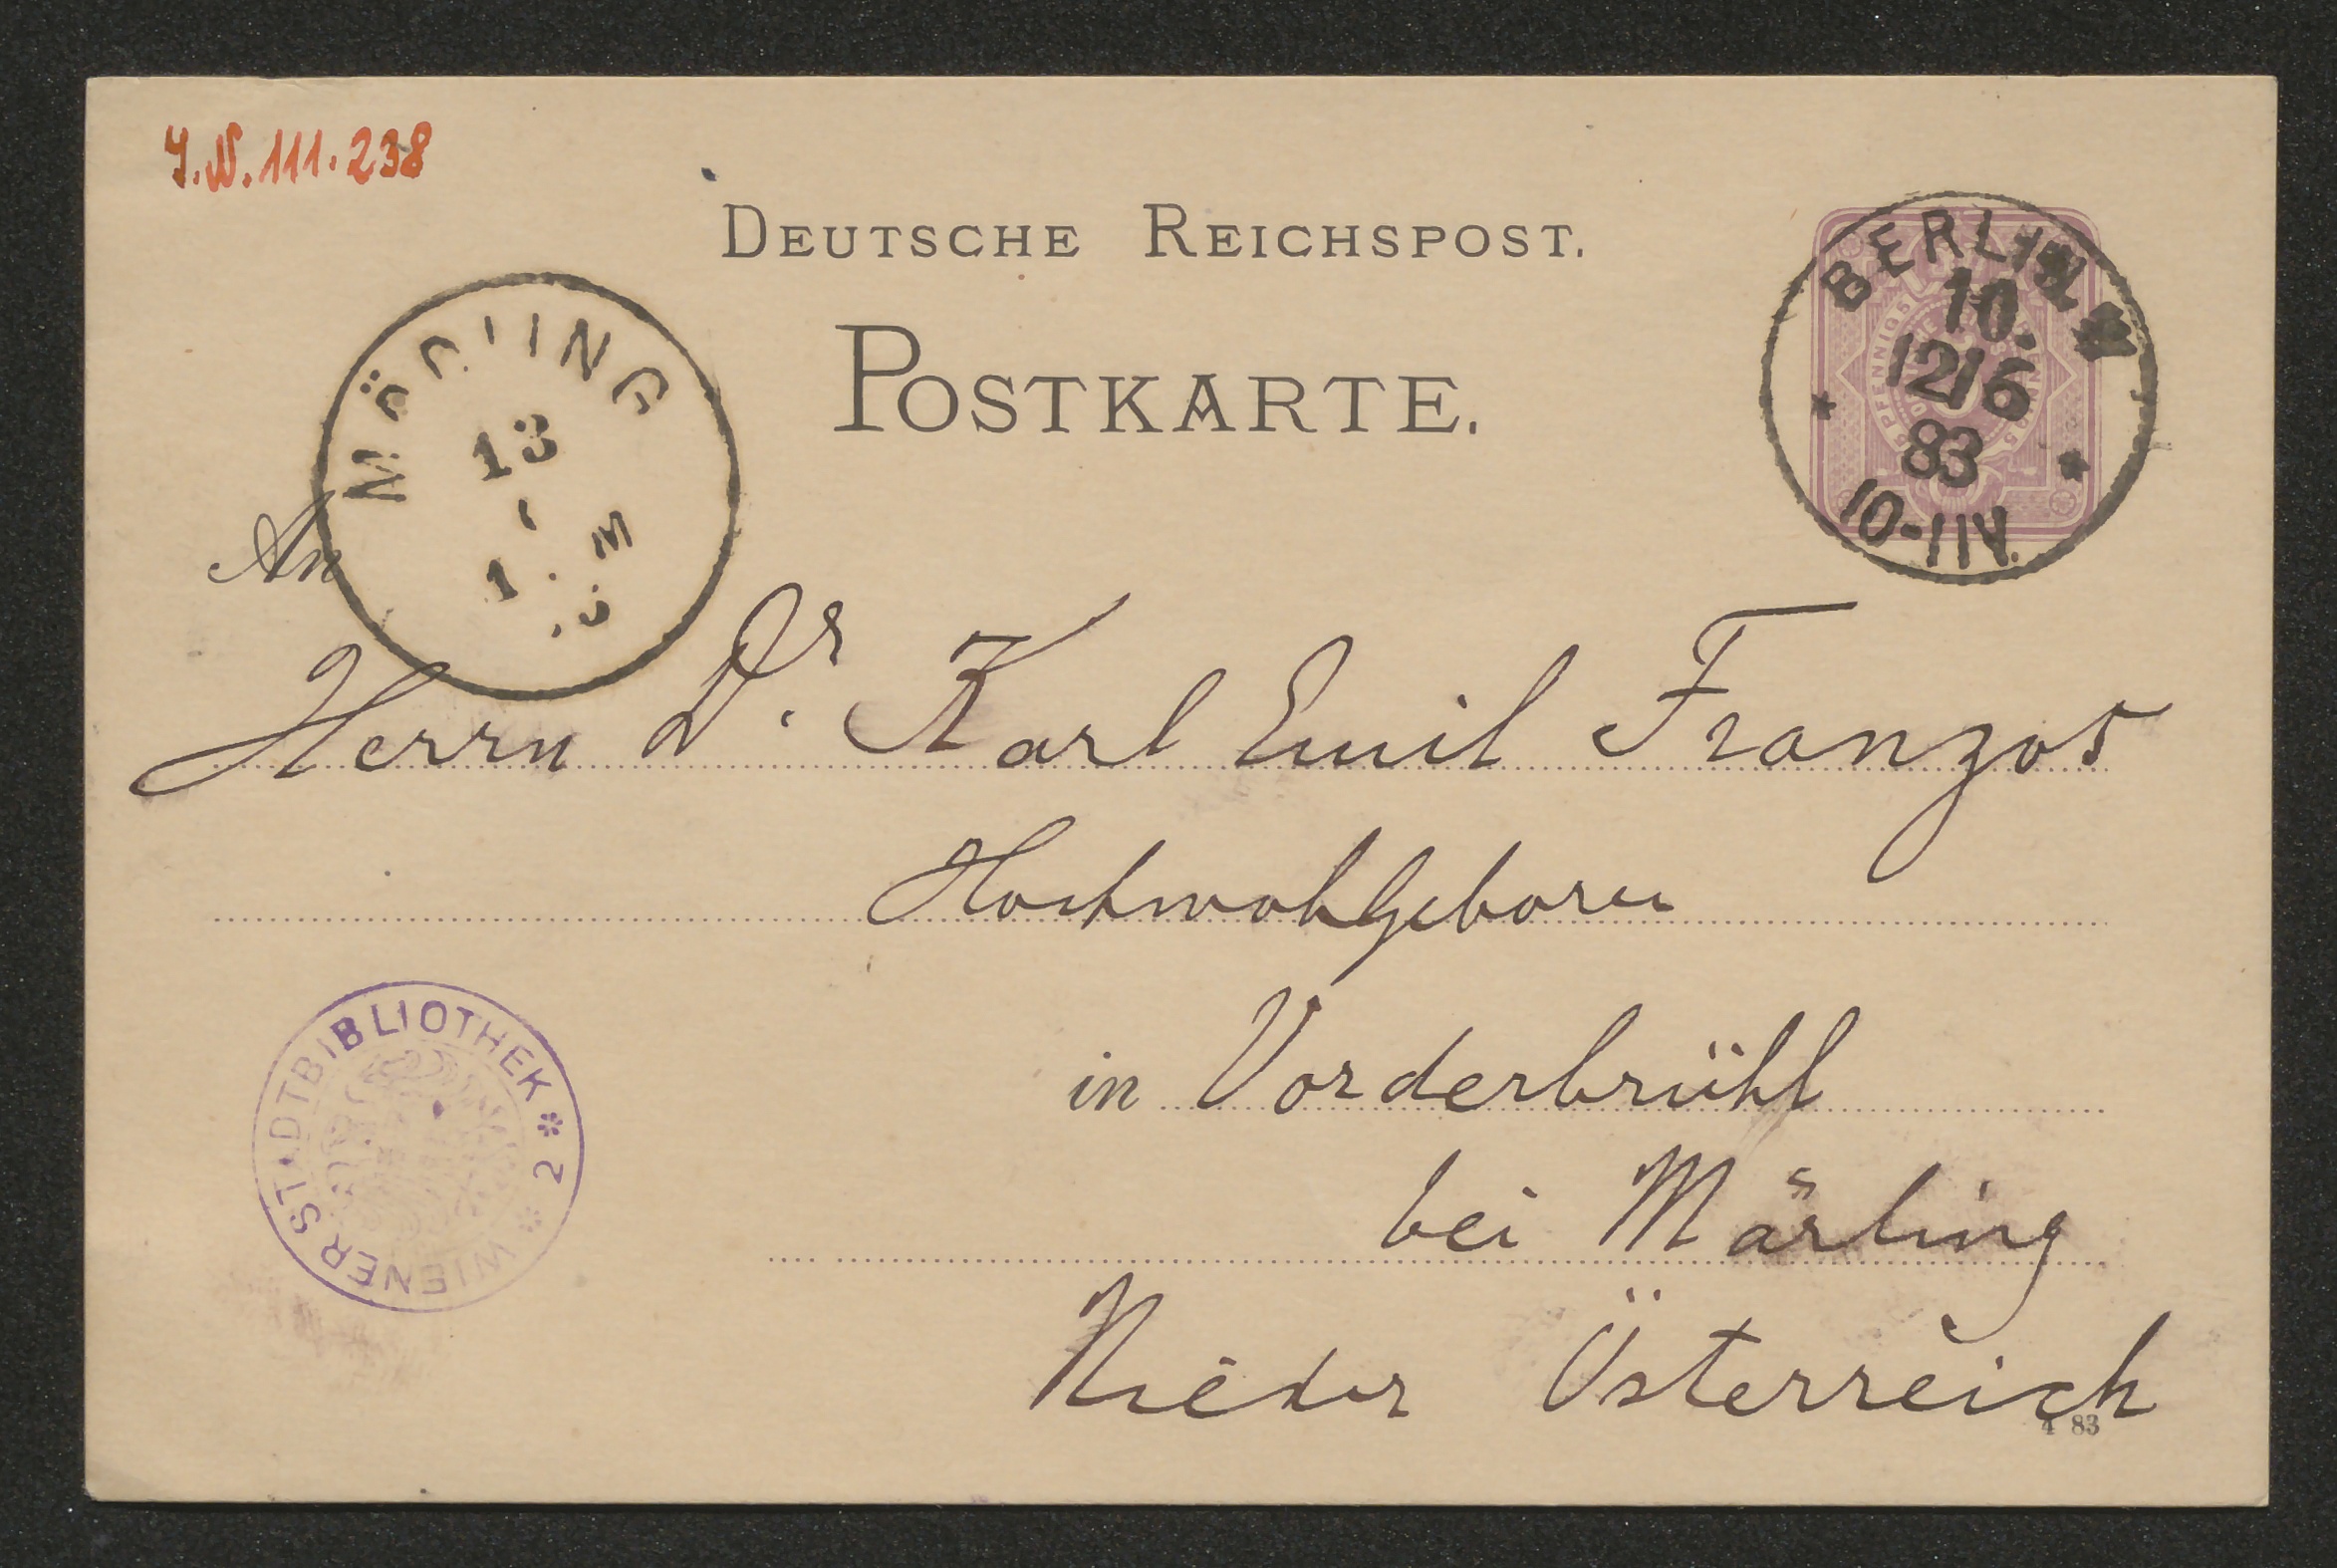 J.N. 111.238
DEUTSCHE REICHSPOST.
POSTKARTE.
BERLIN W
10.
12/6
83
10-11V.
13
An
Herrn Dr. Karl Emil Franzos
Hochwohlgeboren
in Vorderbrühl
bei Märling
Nieder Österreich
WIENER STADTBIBLIOTHEK * 2 *
4 83